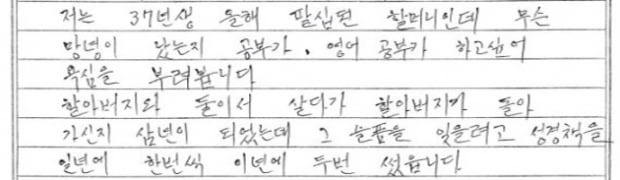 저는 37년생 올해 팔십된 할머니인데 무슨
망녕이 났는지 공부가, 영어 공부가 하고싶어
욕심을 부려봅니다
할아버지와 둘이서 살다가 할아버지가 돌아
가신지 삼년이 되었는데 그 슬픔을 잊을려고 성경책을
일년에 한번씩 이년에 두번 썼읍니다